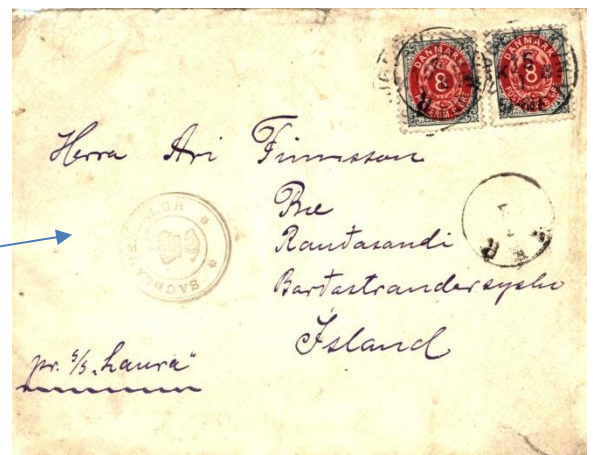 DANMARK
8
DANMARK
8
Herra Ari Finnsson
Bæ
Rauðasandi
Barðastrandarsyslu
Ísland
pr. S/S „Laura"